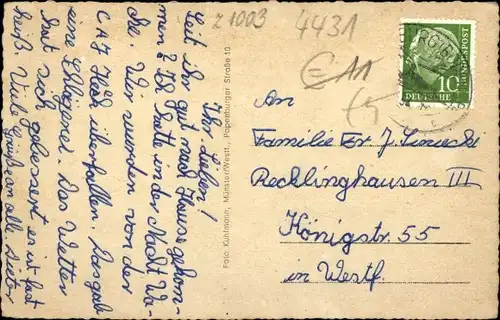 Z1003
4431
€ 11
(5
10
DEUTSCHE BUNDESPOST
Ihr Lieben!
Seit ihr gut nach Hause gekom-
men? Ich hatte in der Nacht Wa-
che. Wir wurden von der
CAJ Huck überfallen. Es gab
eine Schlägerei. Das Wetter
hat sich gebessert es ist fast
heiß. Viele Grüße an alle Dieter
Foto Kuhlmann, Münster/Westf., Papenburger Straße 10
An
Familie Fr. J.
Recklinghausen III
Königstr. 55
in Westf.